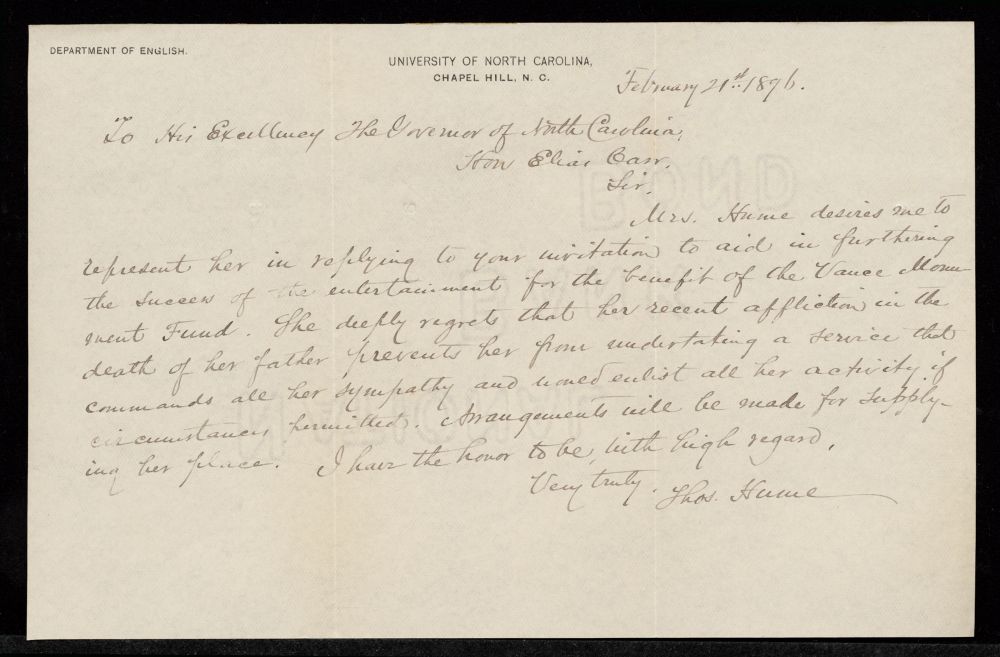 DEPARTMENT OF ENGLISH.
UNIVERSITY OF NORTH CAROLINA,
CHAPEL HILL, N. C.
February 21st. 1896.
To His Excellency The Governor of North Carolina,
Hon Elias Carr.
Sir,
Mrs. Hume desires me to
represent her in replying to your invitation to aid in furthering
the success of the entertainment for the benefit of the Vance Monu-
ment Fund. She deeply regrets that her recent affliction in the
death of her father prevents her from undertaking a service that
commands all her sympathy and would enlist all her activity if
circumstances permitted. Arrangements will be made for supply-
ing her place. I have the honor to be, with high regard,
Very truly.
Thos. Hume
BOND